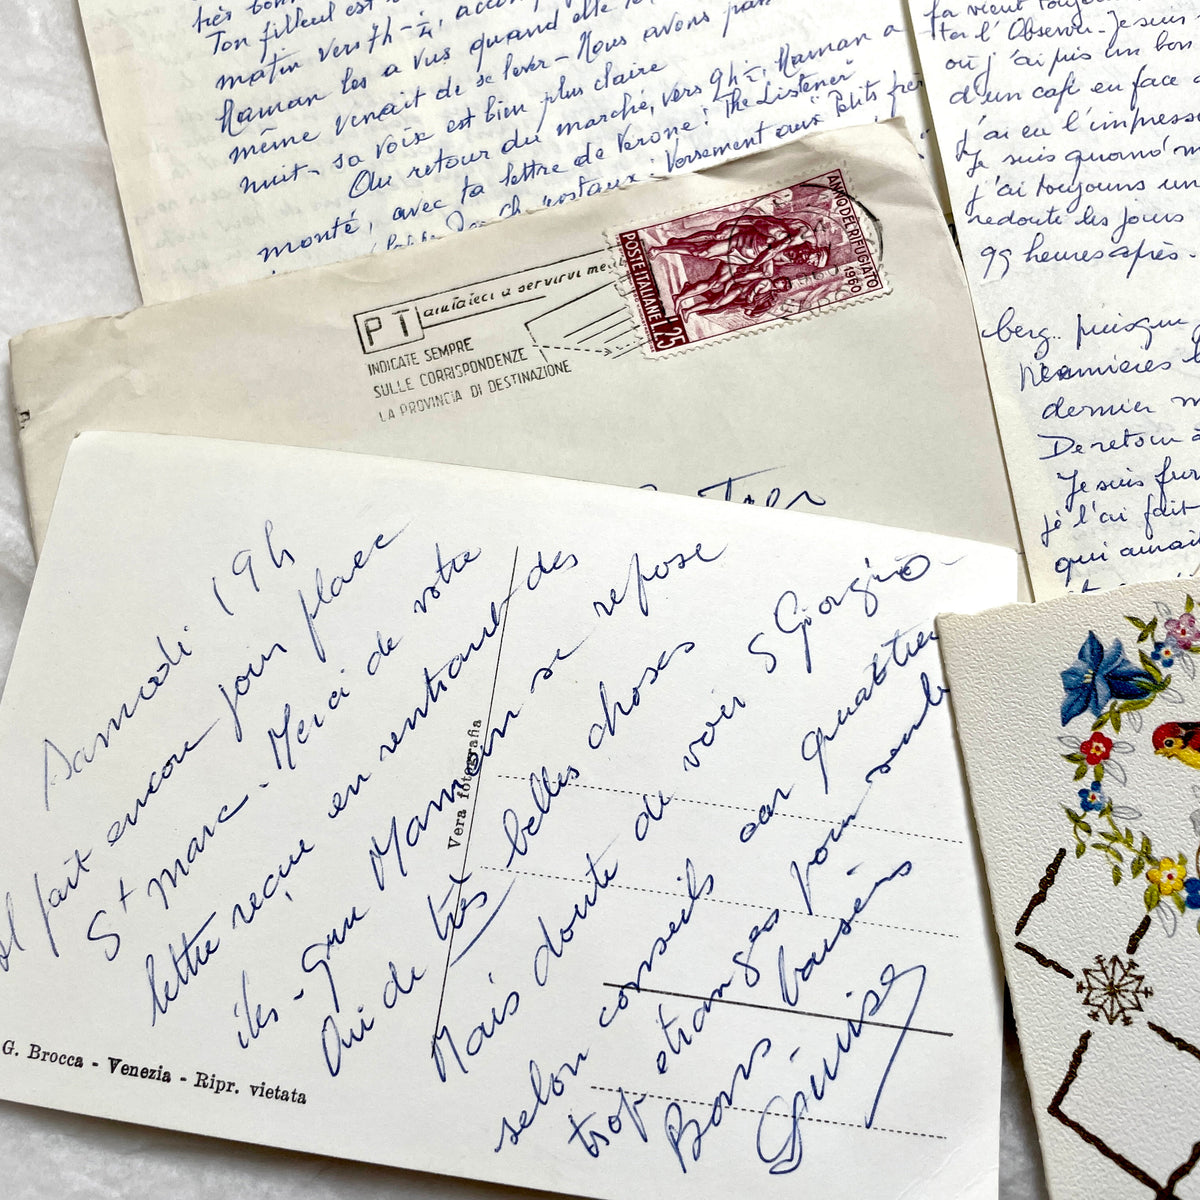 très bon
Ton filleul est
matin vers 7h-¼, accom
Maman les a vus quand elle
même venait de se lever - Nous avons
nuit - sa voix est bien plus claire
Au retour du marché, vers 9h ¼, Maman a
monté, avec ta lettre de Verone : "The Listener"
postaux : Versement aux "Petits frè
fa vient toujours
l'Observ. Je suis
où j'ai pris un bon
d'un café en face
j'ai eu l'impress
Je suis quand m
j'ai toujours un
redoute les jours
99 heures après.
berg.. puisque
dernier m
De retour à
Je suis fur
je l'ai fait
qui aurait
ANNO DEL RIFUGIATO
1960
POSTE ITALIANE L.25
PT aiutateci a servirvi me
INDICATE SEMPRE
SULLE CORRISPONDENZE
LA PROVINCIA DI DESTINAZIONE
Samedi 19h
Il fait encore jour place
St Marc - Merci de votre
lettre reçue en rentrant des
îles - que Maman se repose
Oui de très belles choses
Mais doute de voir S Giorgio
selon conseils car quattrer
trop étranges pour semb
Bons baisers
Vera fotografia
G. Brocca - Venezia - Ripr. vietata